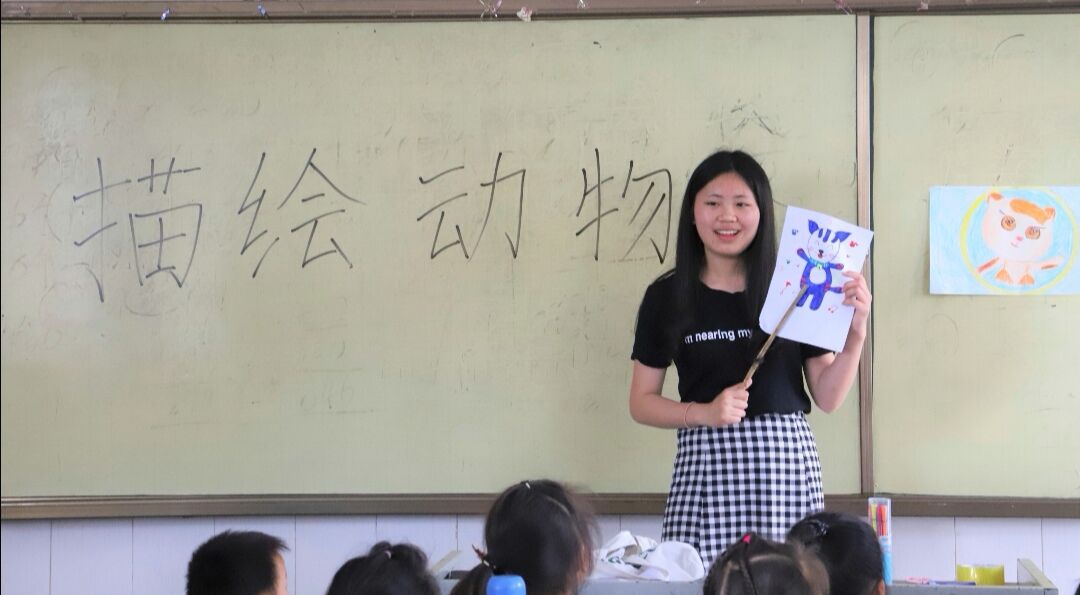 描绘动物
m nearing my